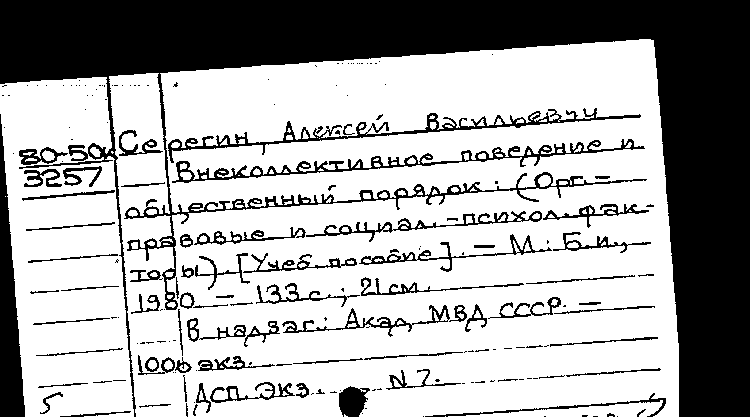 80-50к
3257
Серегин, Алексей Васильевич
Внеколлективное поведение и
общественный порядок: (Орг.-
правовые и социал.-психол. фак-
торы). [Учеб. пособие]. — М.: Б.и.,
1980. — 133 с.; 21 см.
В надзаг.: Акад. МВД СССР. —
1000 экз.
ДСП. Экз. N 7.
5